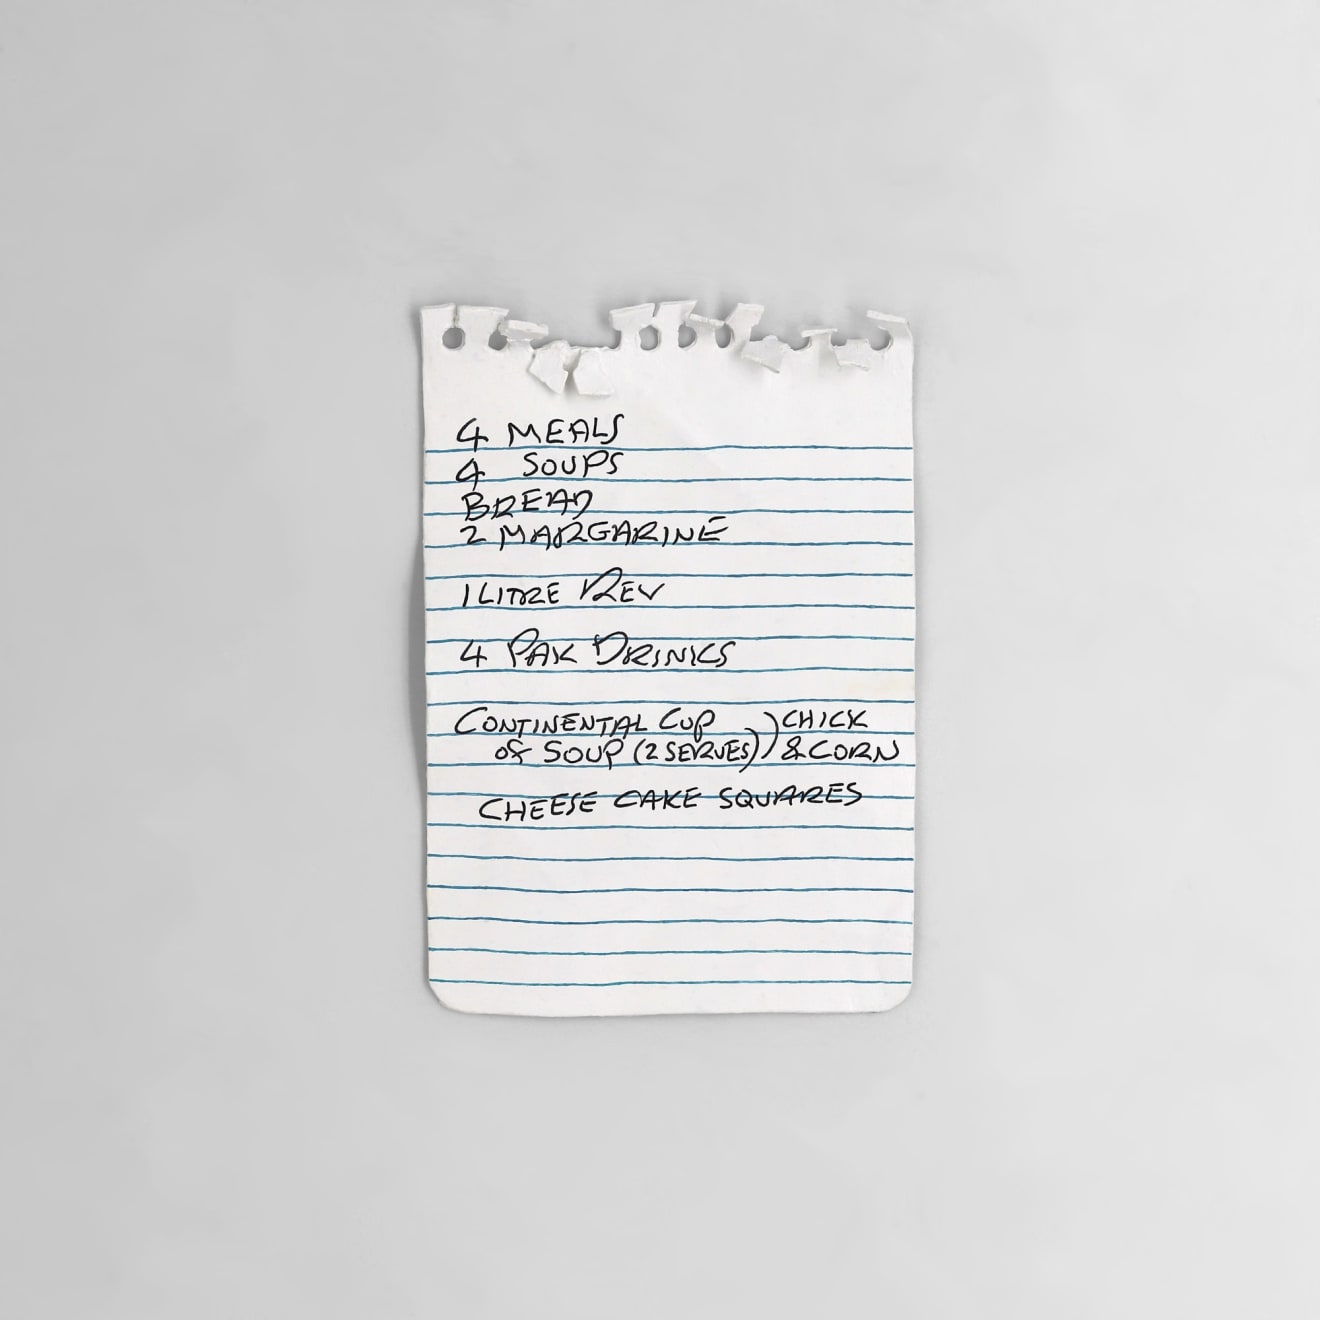 4 MEALS
4 SOUPS
BREAD
2 MARGARINE
1 LITRE REV
4 PAK DRINKS
CONTINENTAL CUP ) CHICK
OF SOUP (2 SERVES) ) & CORN
CHEESE CAKE SQUARES